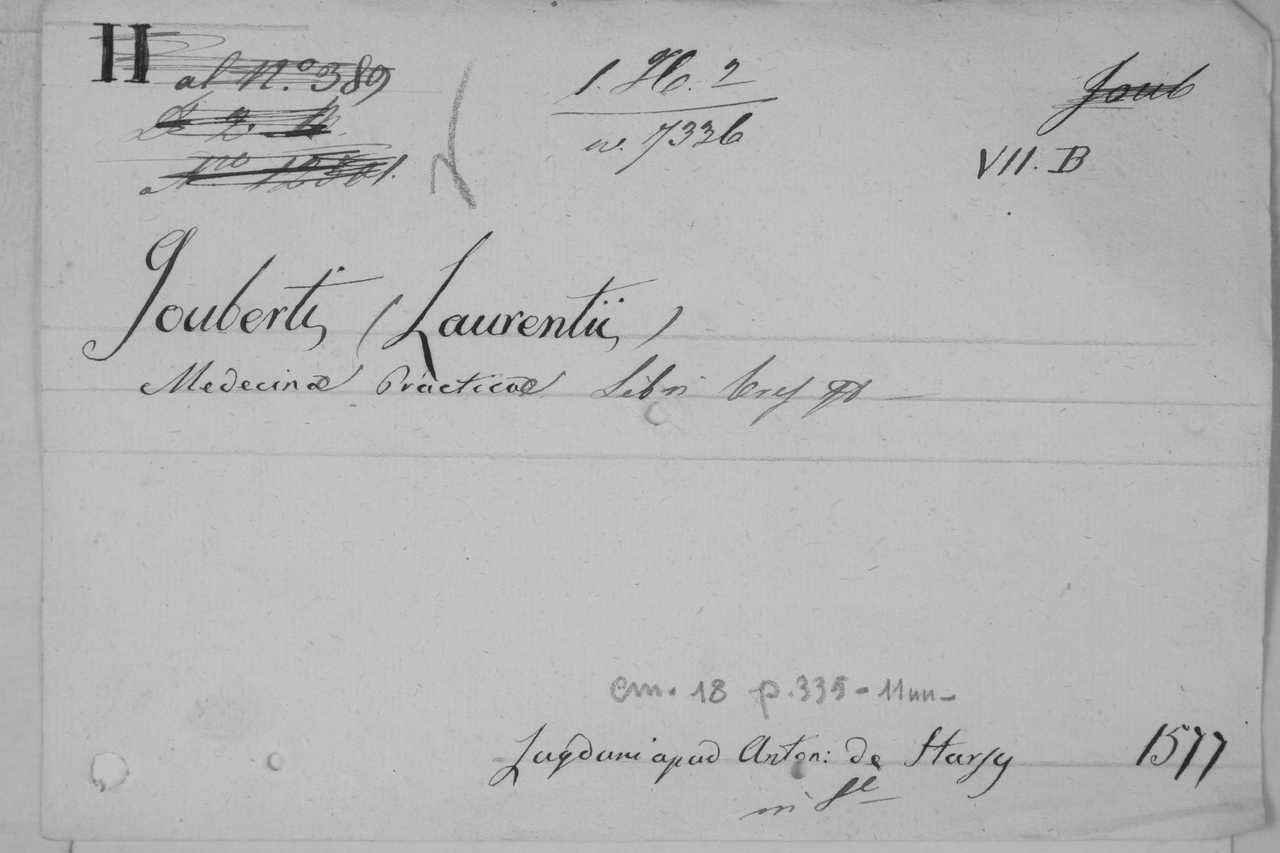 H al N.º 389
1. H. 2
w. 7336
Joub
VII. B
Jouberti (Laurentii)
Medecinæ Practicæ Libri tres
cm. 18 p. 335 - 11 nn -
Lugduni apud Anton: de Harsy 1577
in 8º